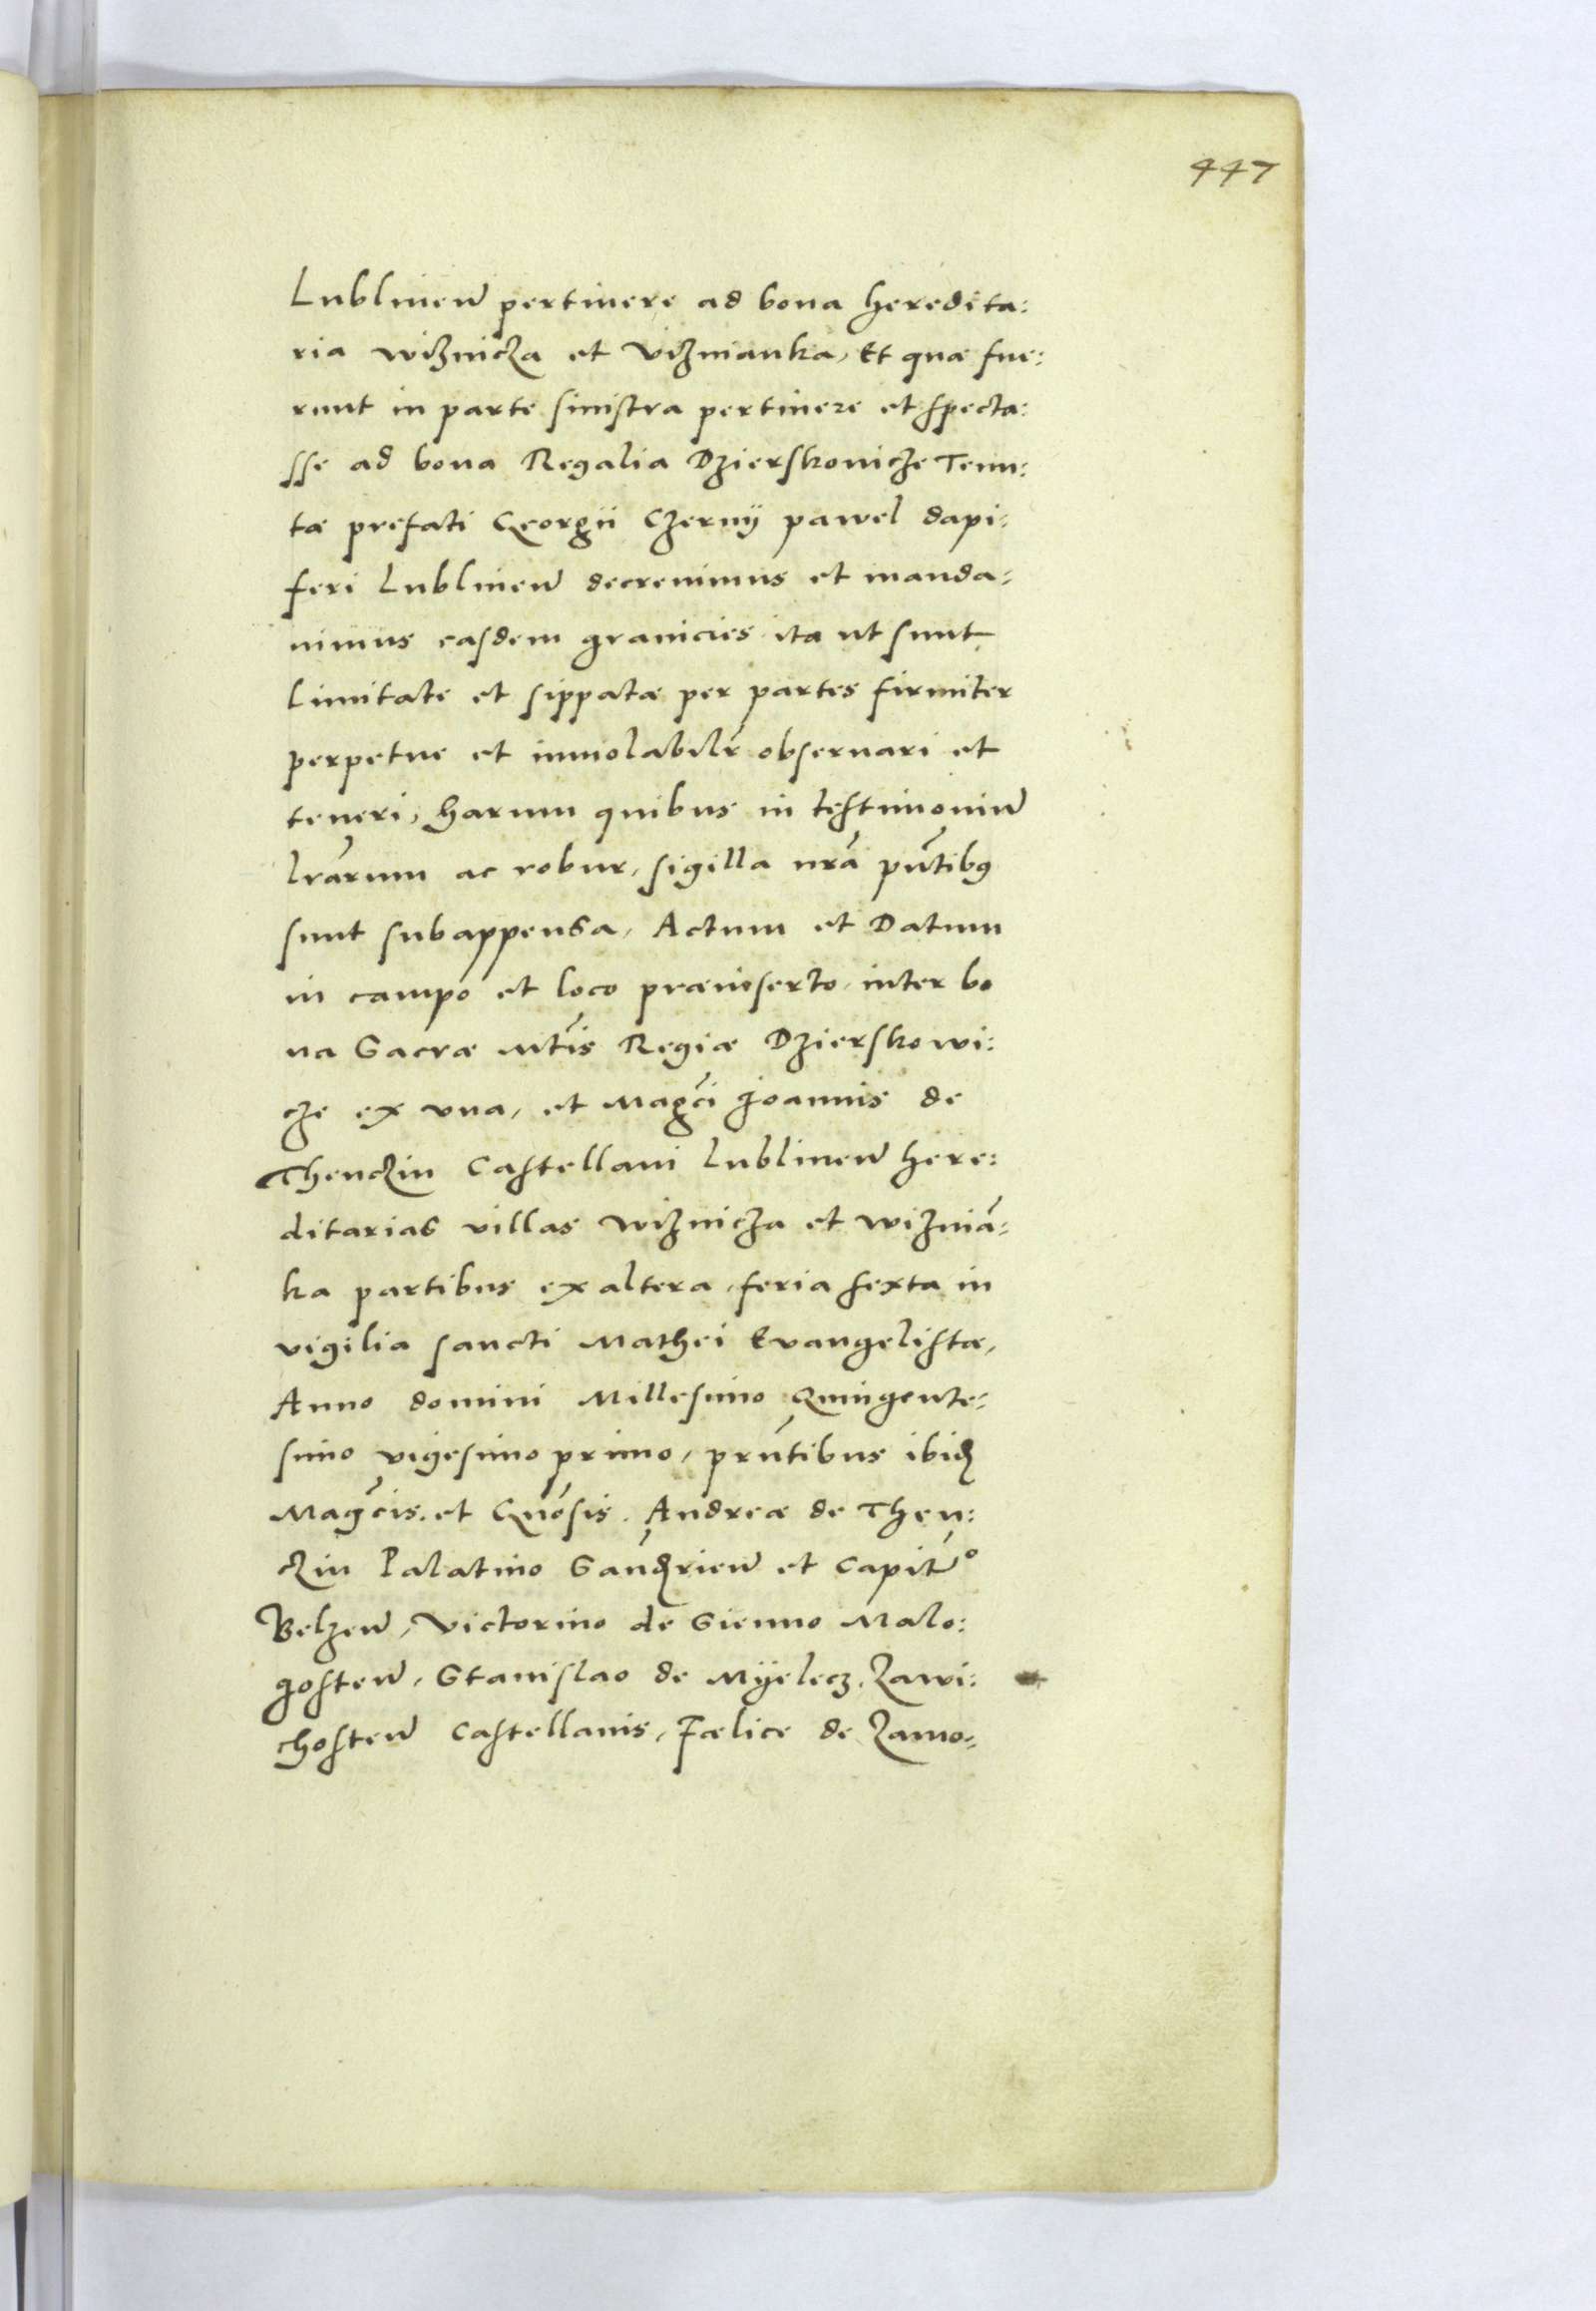 447
Lublinen̄ pertinere ad bona heredita:
ria wiżnicza et viżnianka, Et quæ fue:
runt in parte sinistra pertinere et specta:
sse ad bona Regalia Dzierskovicze Tenu:
tæ prefati Georgii Czernÿ pawel dapi:
feri Lublinen̄ decrevimus et manda:
vimus easdem granicies ita ut sunt
limitate et sippatæ per partes firmiter
perpetue et inviolabilr̄ observari et
teneri, harum quibus in testimoniū
lrārum ac robur, sigilla nrā pūtibꝰ
sunt subappensa, Actum et Datum
in campo et loco præinserto, inter bo
na Sacræ Mtīs Regiæ Dzierskowi:
cze ex una, et Magc̄i Joannis de
Thenczin Castellani Lublinen̄ here:
ditarias villas wiżnicza et wiżniā:
ka partibus ex altera, feria sexta in
vigilia sancti Mathei Evangelistæ,
Anno domini Millesimo Quingente:
simo vigesimo primo, prūtibus ibiđ
Magc̄is. et Gnōsis. Andreæ de Then:
czin Palatino Sandꝝien̄ et Capitn̄º
Belzen̄, Victorino de Sienno Malo:
gosten̄, Stanislao de Mÿelecz, Zawi:
chosten̄ Castellanis, Fælice de Zamo: